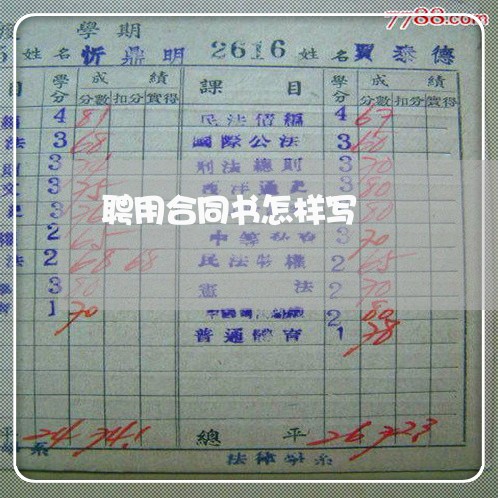 7788.com
學期
姓名 忻鼎明 2616 姓名 賈泰德
目 學分 成績 課目 學分 成績
分數 扣分 實得 分數 扣分 實得
4 81 民法債編 4 67
法 3 68 國際公法 3 60
3 刑法總則 3 70
3 75 西洋通史 3 80
聘用合同书怎样写
2 65 3 70
法 2 68 68 民法物權 2 65
3 80 憲法 2 70
1 70 2 80
普通體育 1 78
平 24 74.1 總平 26 72.3
系 法律學系